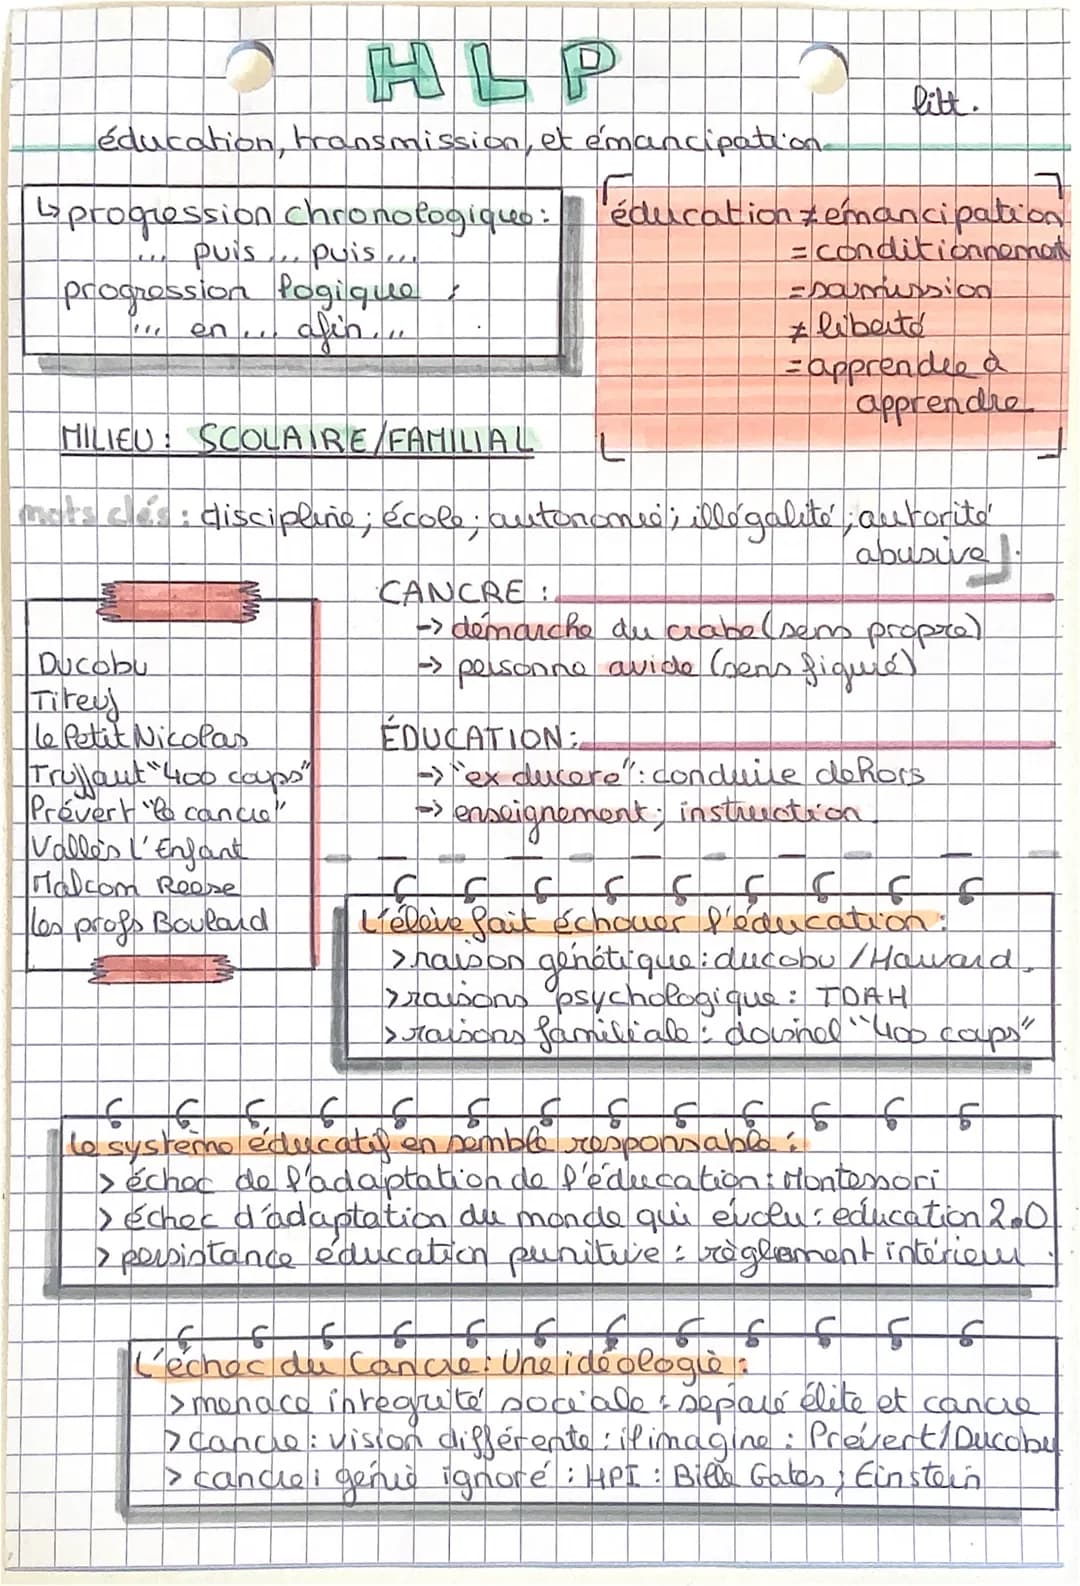 HLP
litt.
éducation, transmission, et émancipation
↳ progression chronologique :
... puis ... puis ...
progression logique :
... en ... afin ...
éducation ≠ émancipation
= conditionnement
= soumission
≠ liberté
= apprendre à
apprendre
MILIEU : SCOLAIRE/FAMILIAL
mots clés : discipline ; école ; autonomie ; illégalité ; autorité
abusive
CANCRE :
-> démarche du crabe (sens propre)
-> personne avide (sens figuré)
Ducobu
Titeuf
le Petit Nicolas
Truffaut "400 coups"
Prévert "le cancre"
Vallès l'Enfant
Malcom Reese
les profs Boulard
ÉDUCATION :
-> "ex ducere" : conduire dehors
-> enseignement ; instruction
L'élève fait échouer l'éducation :
> raison génétique : ducobu / Haward
> raisons psychologique : TDAH
> raisons familiale : doinel "400 coups"
le système éducatif en semble responsable :
> échec de l'adaptation de l'éducation : Montessori
> échec d'adaptation du monde qui évolu : éducation 2.0
> persistance éducation punitive : règlement intérieur
L'échec du Cancre : Une idéologie :
> menace intégrité sociale : séparé élite et cancre
> cancre : vision différente : il imagine : Prévert/Ducobu
> cancre : génie ignoré : HPI : Bille Gates ; Einstein